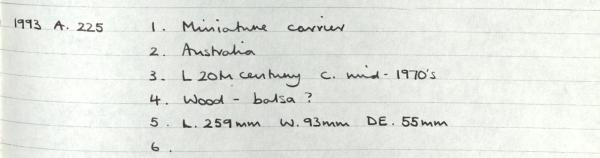 1993 A. 225 1. Miniature carrier
2. Australia
3. L 20th century c. mid-1970's
4. Wood - balsa ?
5. L. 259mm W. 93mm DE. 55mm
6.